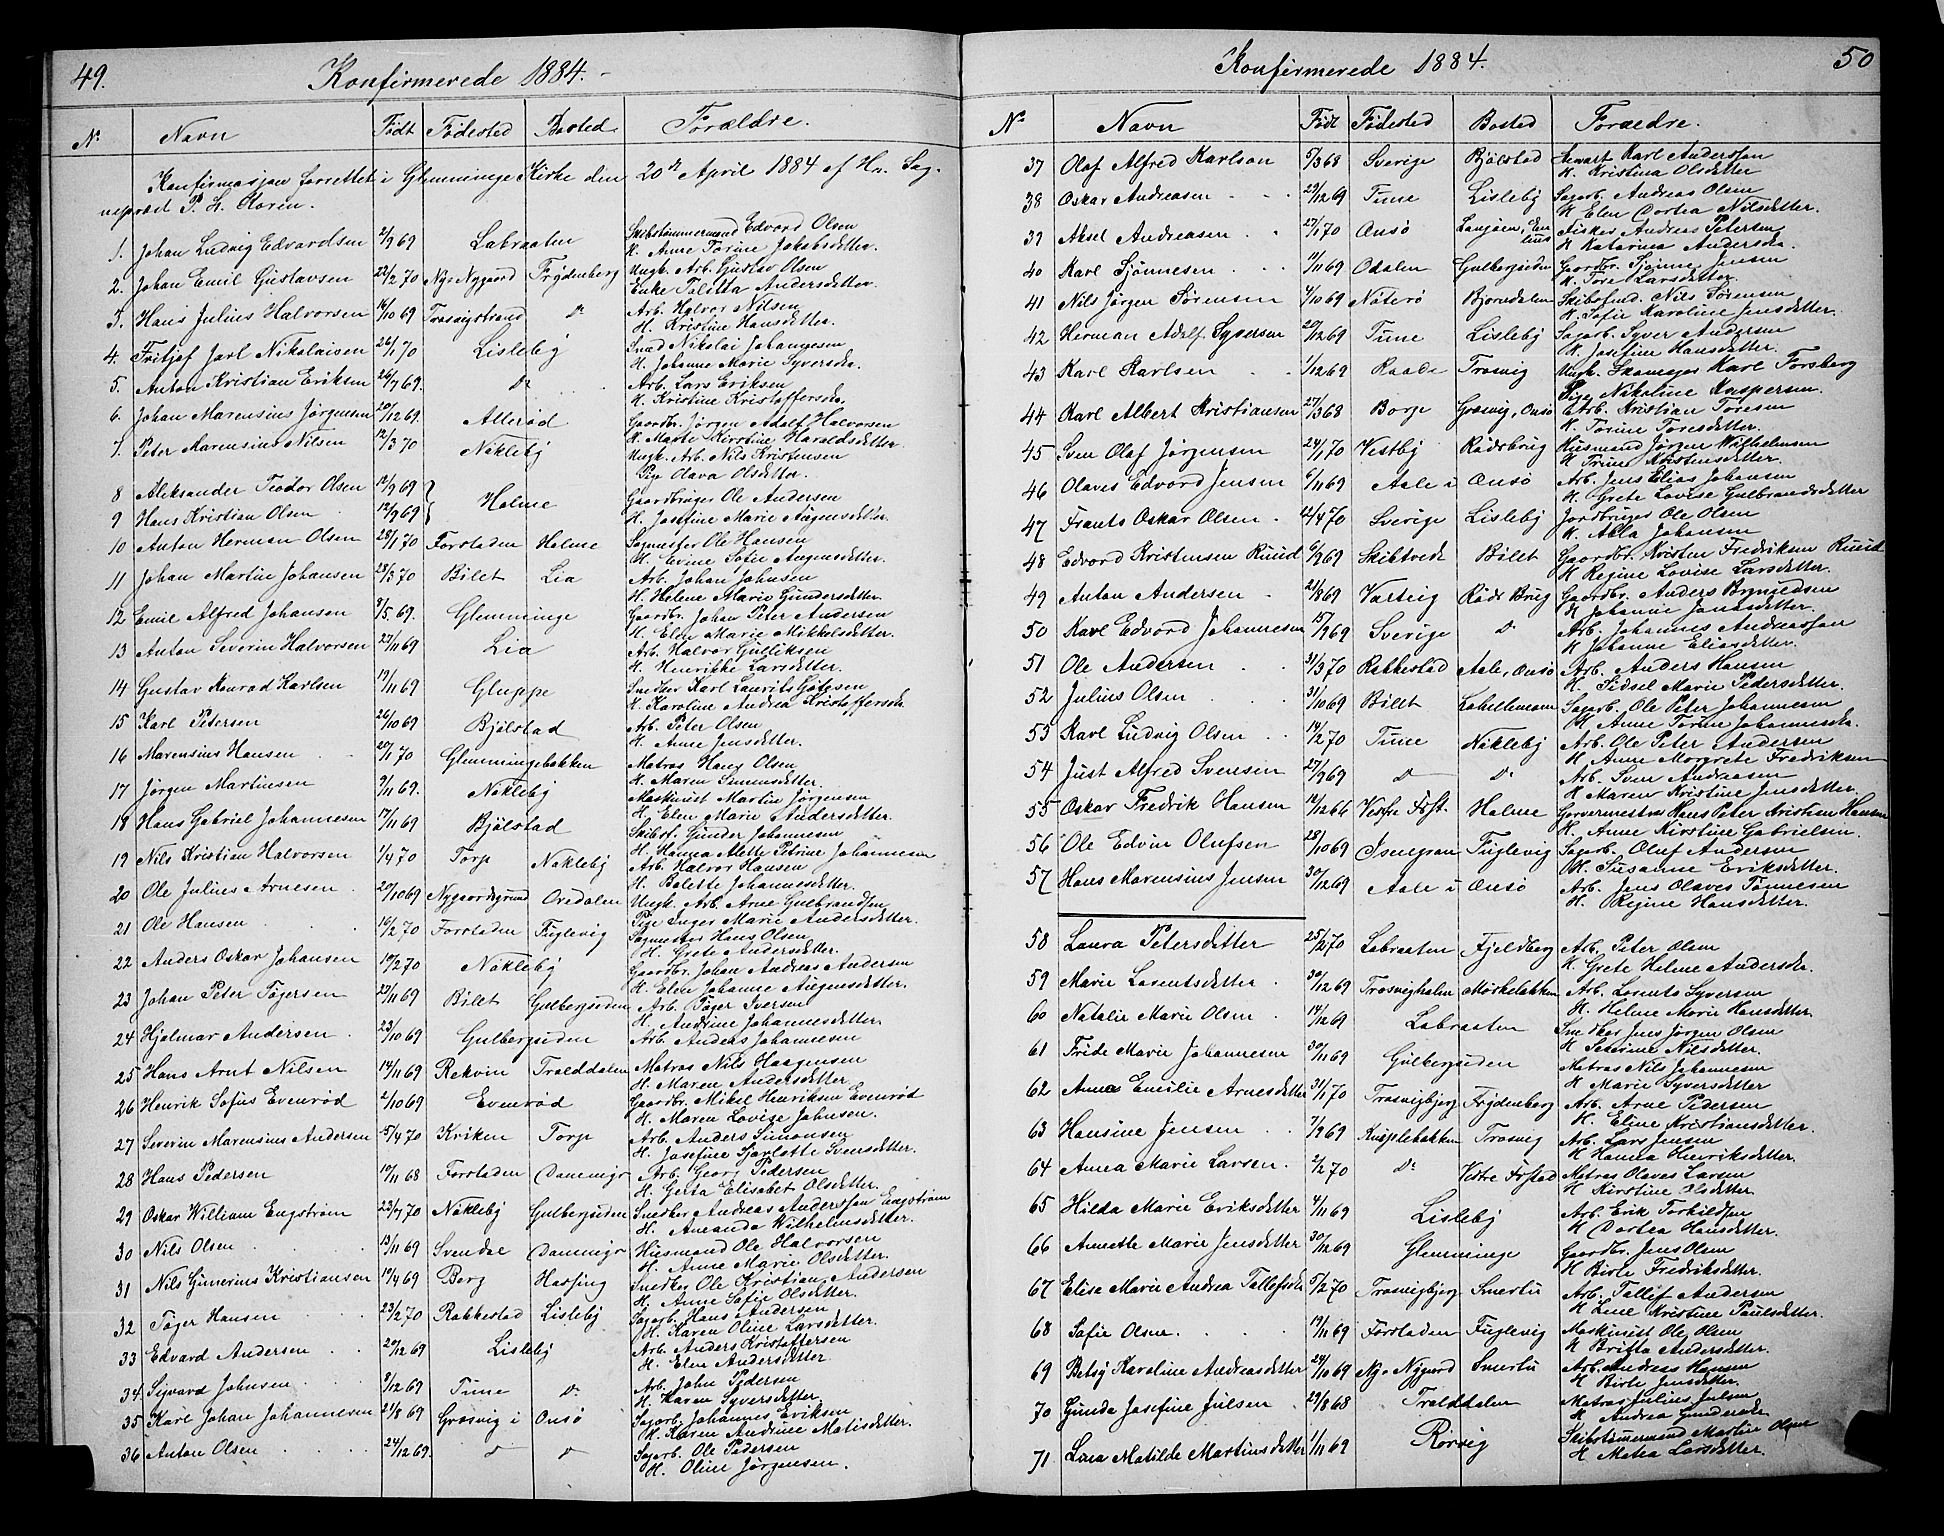 49.
Konfirmerede 1884.
No Navn Födt Födested Bosted Forældre.
Konfirmasjon forrettet i Glemminge Kirke den 20de April 1884 af Hr. Sog-
nepræst P. H.
1. Johan Ludvig Edvardsen 2/9 69 Labraaten Skibstømmermand Edvard Olsen
K. Anne Torine Jakobsdetter.
2. Johan Emil Gustavsen 22/2 70 Ny-Nygaard Frydenberg Ungk. Arb. Gustav Olsen
Enke Taletta Andersdetter.
3. Hans Julius Halvorsen 16/10 69 Trosvigstrand do Arb. Halvor Nilsen
H. Kristine Hansdetter.
4. Fritjof Jarl Nikolaisen 26/1 70 Lisleby Smed Nikolai Johannesen
H. Johanne Marie Syversda.
5. Anton Kristian Eriksen 26/7 69. do Arb. Lars Eriksen
K. Kristine Kristoffersda.
6. Johan Marensius Jørgensen 20/12 69. Allerød Gaardbr. Jørgen Adolf Halvorsen
K. Marte Kirstine Haraldsdetter.
7. Peter Marensius Nilsen 12/3 70 Nakleby Ungk. Arb. Nils Kristensen
Pige Olava Olsdetter.
8 Aleksander Teodor Olsen 12/9 69 } Holme Gaardbruger Ole Andersen
9 Hans Kristian Olsen 12/9 69 H. Josefine Marie Augensdetter.
10 Anton Herman Olsen 28/1 70 Forstaden Holme Sagmester Ole Hansen
H. Evine Sofie Augensdetter.
11 Johan Martin Johansen 28/3 70 Bölet Lia Arb. Johan Johnsen
H. Helene Marie Gundersdetter.
12 Emil Alfred Johansen 8/5 69. Glemminge Gaardbr. Johan Peter Andersen
H. Elen Marie Mikkelsdetter.
13 Anton Severin Halvorsen 22/11 69 Lia Arb. Halvor Gulliksen
H. Henrikke Larsdetter.
14 Gustav Konrad Karlsen 19/11 69 Gluppe Snedker Karl Laurits Götesen
K. Karoline Andrea Kristoffersda
15 Karl Petersen 26/10 69 Bjölstad Arb. Peter Olsen
H. Anne Jensdetter.
16 Marensius Hansen 20/1 70 Glemmingebakken Matros Hans Olsen
K. Maren Simensdetter.
17 Jörgen Martinsen 9/11 69. Nakleby Maskinist Martin Jörgensen
H. Elen Marie Andersdetter.
18 Hans Gabriel Johannesen 17/11 69 Bjölstad Skibst. Gunder Johannesen
H. Hanna Alette Petrine Johannesen
19 Nils Kristian Halvorsen 1/4 70 Torp Nakleby Arb. Halvor Hansen
H. Bolette Johannesdetter.
20 Ole Julius Arnesen 20/10 69 Nygaardsgrund Oredalen Ungk. Arb. Arne Gulbrandsen
Pige Inger Marie Andersdetter.
21 Ole Hansen 16/2 70 Forstaden Fuglevig Sagmester Hans Olsen
H. Grete Andersdetter.
22 Anders Oskar Johansen 19/2 70 Nakleby Gaardbr. Johan Andreas Andersen
H. Elen Johanne Augensdetter.
23 Johan Peter Tögersen 23/11 69 Bölet Gulbergsiden Arb. Töger Iversen
H. Andrine Johannesdetter.
24 Hjalmar Andersen 23/10 69 Gulbergsiden Arb. Anders Johannesen
25 Hans Arnt Nilsen 14/11 69 Rekvin Tralddalen Matros Nils Haagensen
H. Maren Andersdetter
26 Henrik Sofus Evenröd 2/10 69 Evenröd Gaardbr. Mikel Henriksen Evenröd
H. Maren Lovise Johnsen.
27 Severin Marensius Andersen 5/4 70 Kriken Torp Arb. Anders Simonsen
H. Josefine Sjarlotte Svensdetter.
28 Hans Pedersen 19/11 68 Forstaden Dammige Arb. Georg Pedersen
H. Gerta Elisabet Olsdetter.
29 Oskar William Engström 23/7 70 Nakleby Gulbergsiden Snedker Andreas Andersson Engström
H. Amanda Wilhelmsdetter.
30 Nils Olsen 13/11 69 Svendse Dammigr Husmand Ole Halvorsen
H. Anne Marie Olsdetter.
31 Nils Gunerius Kristiansen 19/4 69 Berg Hassing Snedker Ole Kristian Andersen
H. Anne Sofie Olsdetter.
32 Töger Hansen 23/2 70 Rakkestad Lisleby Sagarb. Hans Andersen
H. Karen Oline Larsdetter.
33 Edvard Andersen 29/12 69 Lisleby Arb. Anders Kristoffersen
H. Elen Andersdetter.
34 Sigvard Johnsen 8/12 69 Tune do Arb. John Pedersen
H. Karen Syversdetter.
35 Karl Johan Johannesen 21/8 69 Grosvig i Onsö Sagarb. Johannes Eriksen
K. Karen Andrine Matisdetter.
36 Anton Olsen 24/12 69. do do Sagarb. Ole Pedersen
H. Oline Jörgensen.
50
Konfirmerede 1884.
No Navn Födt Födested Bosted Forældre.
37 Olaf Alfred Karlson 5/3 68 Sverige Bjölstad Stewart Karl Andersson
K. Kristina Olsdetter
38 Oskar Andreasen 29/12 69 Tune Lisleby Sagarb. Andreas Olsen
K. Elen Dortea Nilsdetter.
39 Aksel Andreasen 27/1 70 Onsö Fisker Andreas Petersen
H. Katarina Andersda.
40 Karl Sjönnesen 11/11 69 Odalen Gulbergsiden Gaardbr. Sjönne Jensen
K. Tore Larsdetter.
41 Nils Jörgen Sörensen 4/10 69 Nöterö Bjorndalen Skibsfend. Nils Sörensen
K. Sofie Karoline Jensdetter.
42 Herman Adolf Syversen 20/12 69 Tune Lisleby Sagarb. Syver Andersen
K. Josefine Hansdetter.
43 Karl Karlsen 1/12 69 Raade Trosvig Ungk. Skomager Karl Forsberg
Pige Nikoline Kaspersen.
44 Karl Albert Kristiansen 27/3 68 Borge Grosvig, Onsö Arb. Kristian Toresen
K. Torine Toresdetter.
45 Sven Olaf Jörgensen 24/1 70 Vestby Rödsbrug Husmand Jörgen Wilhelmsen
K Trine Kristensdetter.
46 Olaves Edvard Jensen 6/11 69 Aale i Onsö Arb. Jens Elias Johansen
H. Grete Lovise Gulbrandsdetter
47 Frants Oskar Olsen 12/4 70 Sverige Lisleby Jordbruger Ole Olsen
K. Abla Johansen
48 Edvard Kristensen Ruud 6/9 69 Skibtvedt Bölet Gaardbr. Kristen Fredriksen Ruud
K Regine Lovise Larsdetter.
49 Anton Andersen 21/8 69 Varteig Röds Brug Gaardbr. Anders Brynildsen
H. Johanne Jonasdetter.
50 Karl Edvard Johannesen 15/9 69 Sverige do Arb. Johannes Andreasson
K Johanne Eliasdetter.
51 Ole Andersen 31/3 70 Rakkestad Aale, Onsö Arb. Anders Hansen
H. Sidsel Marie Pedersdetter.
52 Julius Olsen 31/10 69 Bölet Labellemann Sagarb. Ole Peter Johannesen
H Anne Torine Johannesda.
53 Karl Ludvig Olsen 14/2 70 Tune Nakleby Arb. Ole Peter Andersen
H Anne Margrete Fredriksen
54 Just Alfred Svensen 27/9 69 do do Arb. Sven Andreasen
K Maren Kristine Jensdetter.
55 Oskar Fredrik Hansen 12/12 66 Vestre Forst. Holme Garvermester Hans Peter Kristian Hansen
H. Anne Kirstine Gabrielsen.
56 Ole Edvin Olufsen 28/10 69 Isengran Fuglevig Sagarb. Oluf Andersen
K. Susanne Eriksdetter.
57 Hans Marensius Jensen 30/12 69 Aale i Onsö Arb. Jens Olaves Tönnesen
H. Regine Hansdetter.
58 Laura Petersdetter 25/2 70 Labraaten Fjeldberg Arb. Peter Olsen
K. Grete Helene Andersda.
59 Marie Lorentsdetter 30/12 69 Trosvigholm Mörkebakken Arb. Lorents Syversen
H. Helene Marie Hansdetter.
60 Natalie Marie Olsen 14/12 69 Labraaten Snedker Jens Jörgen Olsen
H. Severine Nilsdetter.
61 Fride Marie Johannesen 30/11 69 Gulbergsiden Matros Nils Johannesen
K Marie Syversdetter.
62 Anna Emilie Arnesdetter 31/1 70 Trosvigbjerg Frydenberg Arb. Arne Pedersen
H. Eline Kristiansdetter.
63 Hansine Jensen 7/9 69 Kniplebakken Trosvig Arb. Lars Jensen
K Hanna Henriksdetter.
64 Anna Marie Larsen 2/2 70 do Vestre Forstad Matros Olaves Larsen
H Kirstine Olsdetter
65 Hilda Marie Eriksdetter 4/11 69 Lisleby Arb. Erik Torkildsen
K Dortea Hansdetter.
66 Annette Marie Jensdetter 30/12 69 Glemminge Gaardbr. Jens Olsen
H Birte Fredriksdetter.
67 Elise Marie Andrea Tallefsda 5/2 70 Trosvigbjerg Smertu Arb. Tallef Andersen
K Line Kristine Paulsdetter.
68 Sofie Olsen 19/11 69 Forstaden Fuglevig Maskinist Ole Olsen
K Britta Andersdetter.
69 Betsy Karoline Andreasdetter 24/10 69 Ny-Nygaard Smertu Arb. Andreas Hansen
H Birte Jensdetter.
70 Gunda Josefine Julsen 29/8 68 Tralddalen Matros Julius Julsen
K Andrea Gundersda
71 Lina Matilde Martinsdetter 1/11 69 Rörvig Skibstømmermand Martin Olsen
H Matea Larsdetter.